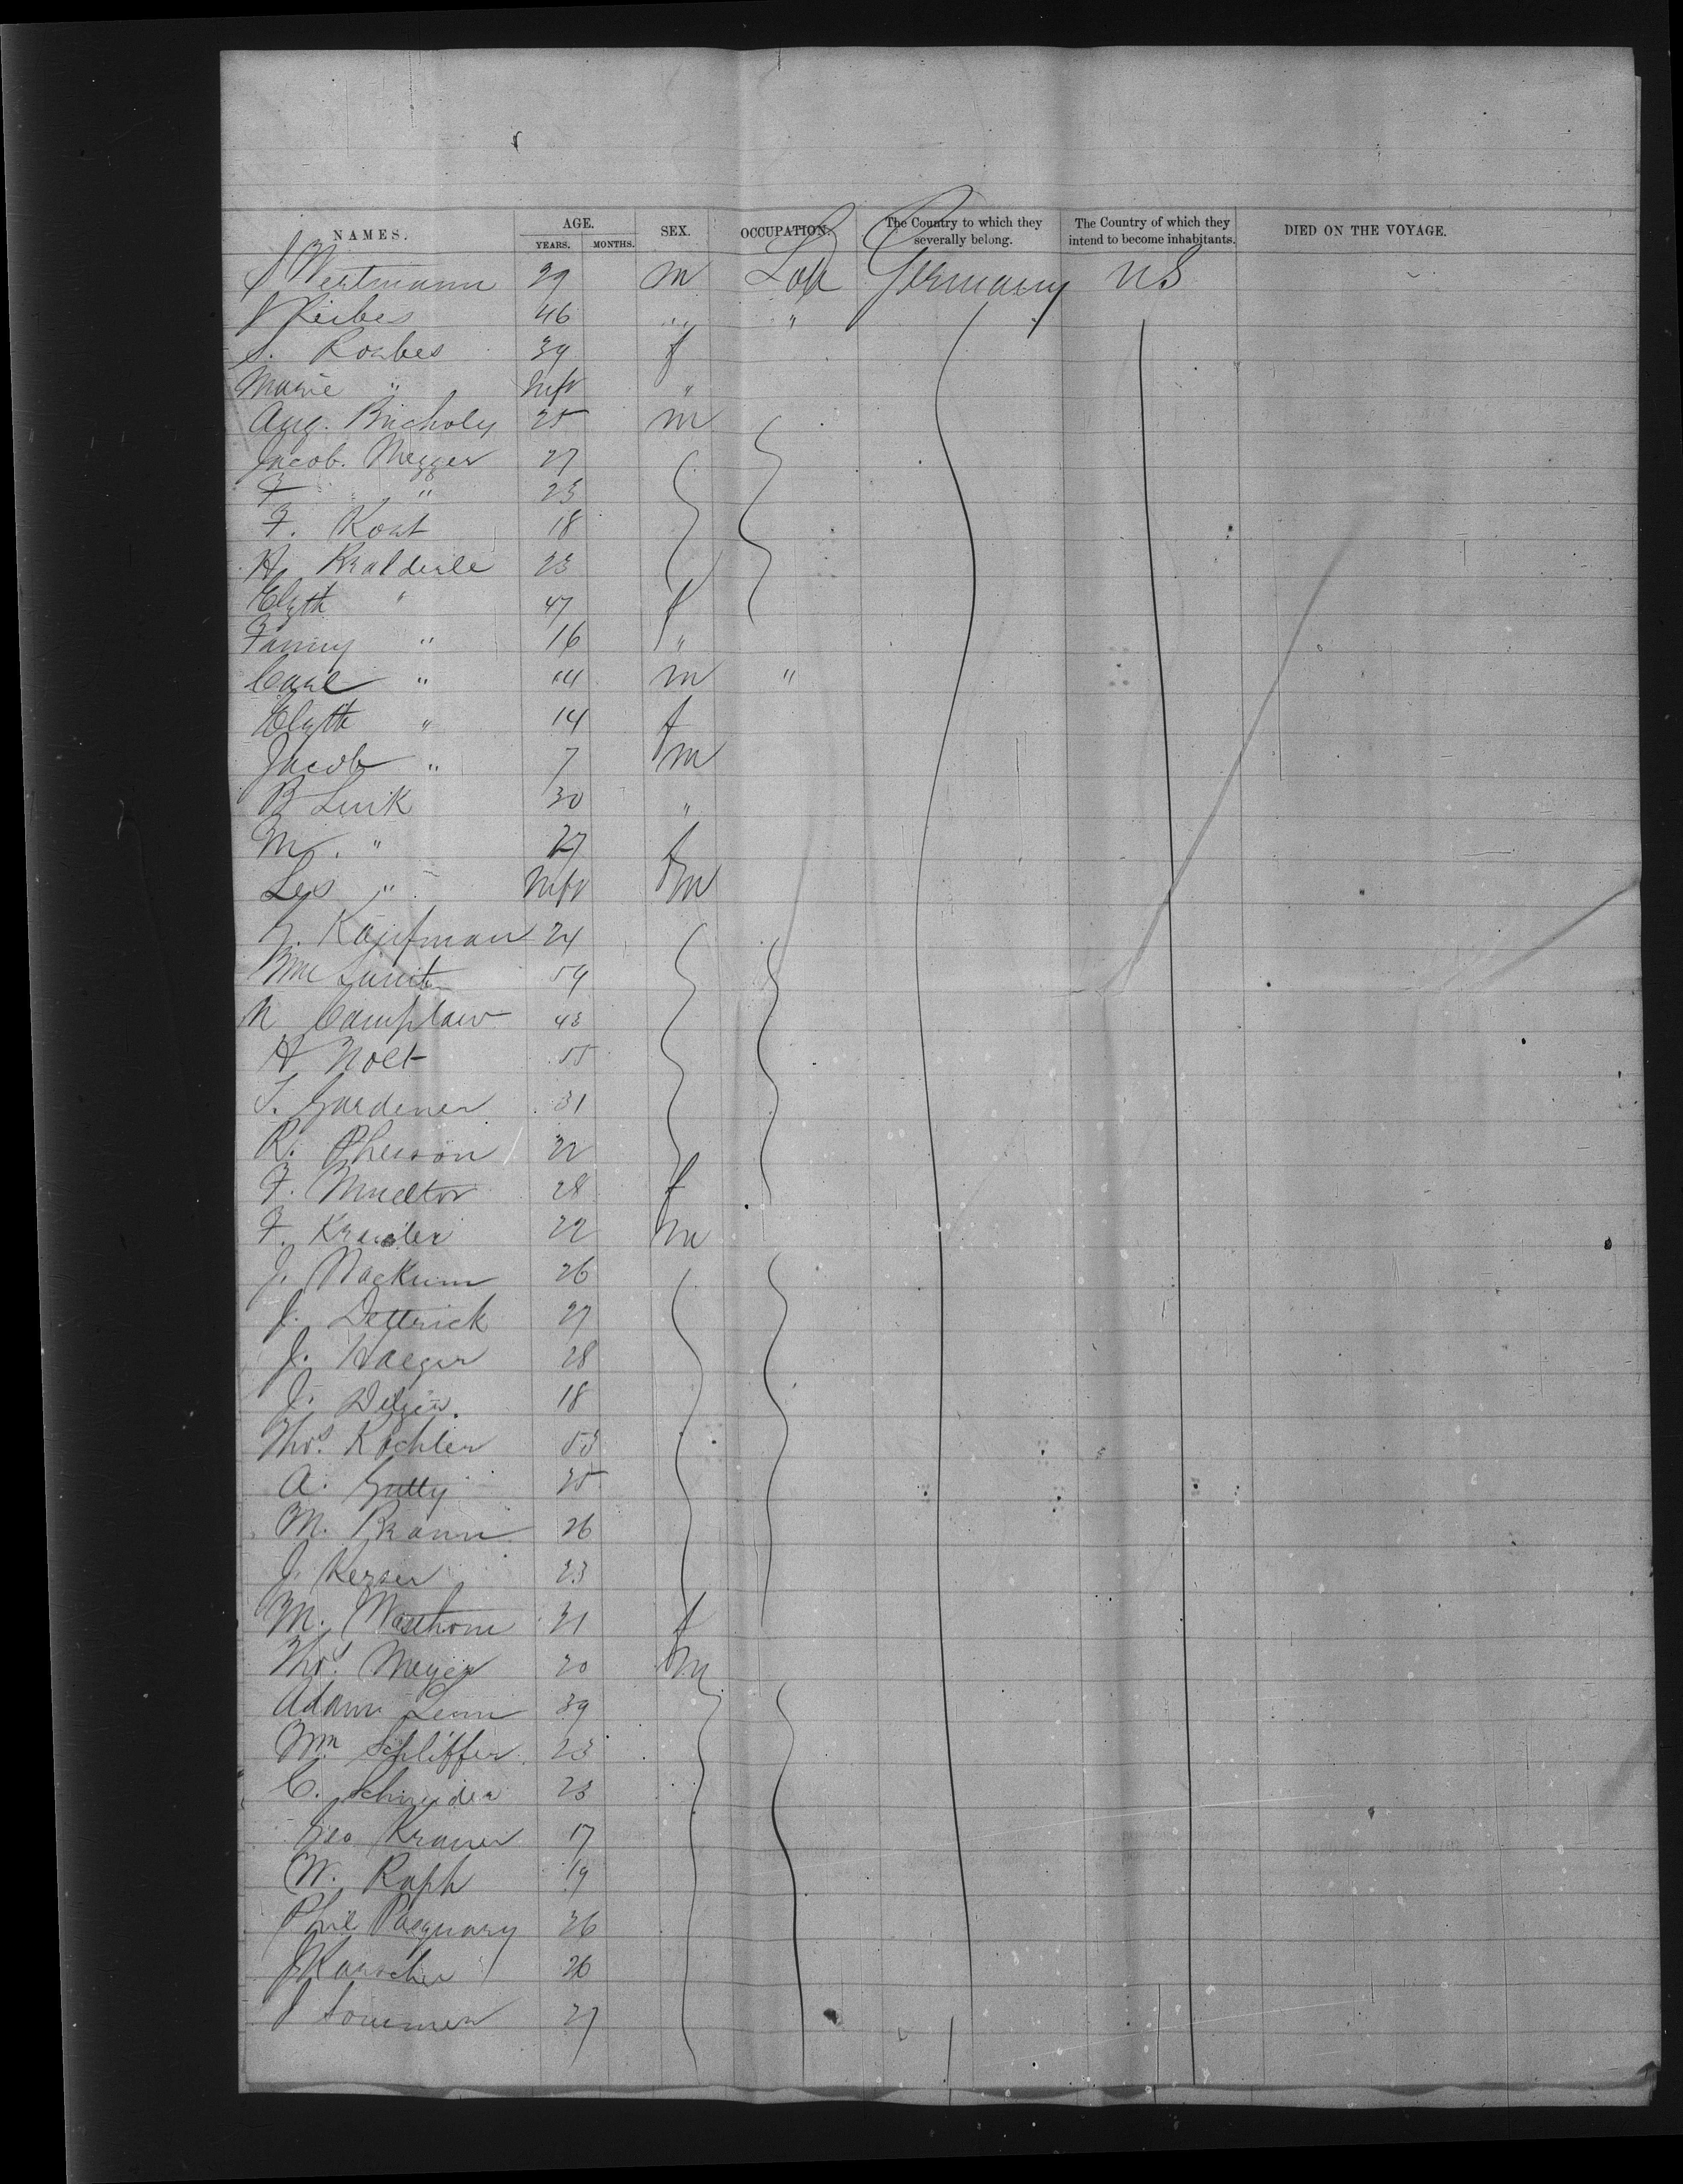 NAMES. AGE. YEARS. MONTHS. SEX. OCCUPATION. The Country to which they severally belong. The Country of which they intend to become inhabitants. DIED ON THE VOYAGE.
Westmann 29 m Lab Germany US
46 " "
S. Roabes 39 f
Marie " Inft "
Aug. 25 m
Jacob. Mezger 27
F " 23
F. Kost 18
23
Elyth " 47 f
Fanny " 16 "
Carl " 14 m "
Elyth " 14 f
Jacob " 7 m
B Link 30 "
M. " 27 f
Leo " Inft m
Kaufman 24
54
N 43
H Nolt 55
T. Gardener 31
R. Pherson 22
F. 28 f
F. Krausler 22 m
J. Mackum 26
J. Dettrick 27
J. Haeger 28
J. 18
Thos. Kochler 53
A. Gutty 25
M. Braun 26
J. Kerser 23
M. 31 f
Thos. Meyer 20 m
Adam 39
Wm Schliffer 23
C. Schneider 23
Geo Kramer 17
W. Raph 19
Phil Pasquary 36
J Karscher 26
J Sommer 27